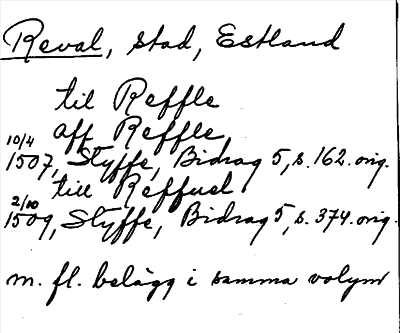 Reval, stad, Estland
til Reffle
aff Reffle
10/4 1507, Styffe, Bidrag 5, s. 162. orig.
till Reffuel
2/10 1509, Styffe, Bidrag 5, s. 374. orig.
m. fl. belägg i samma volym